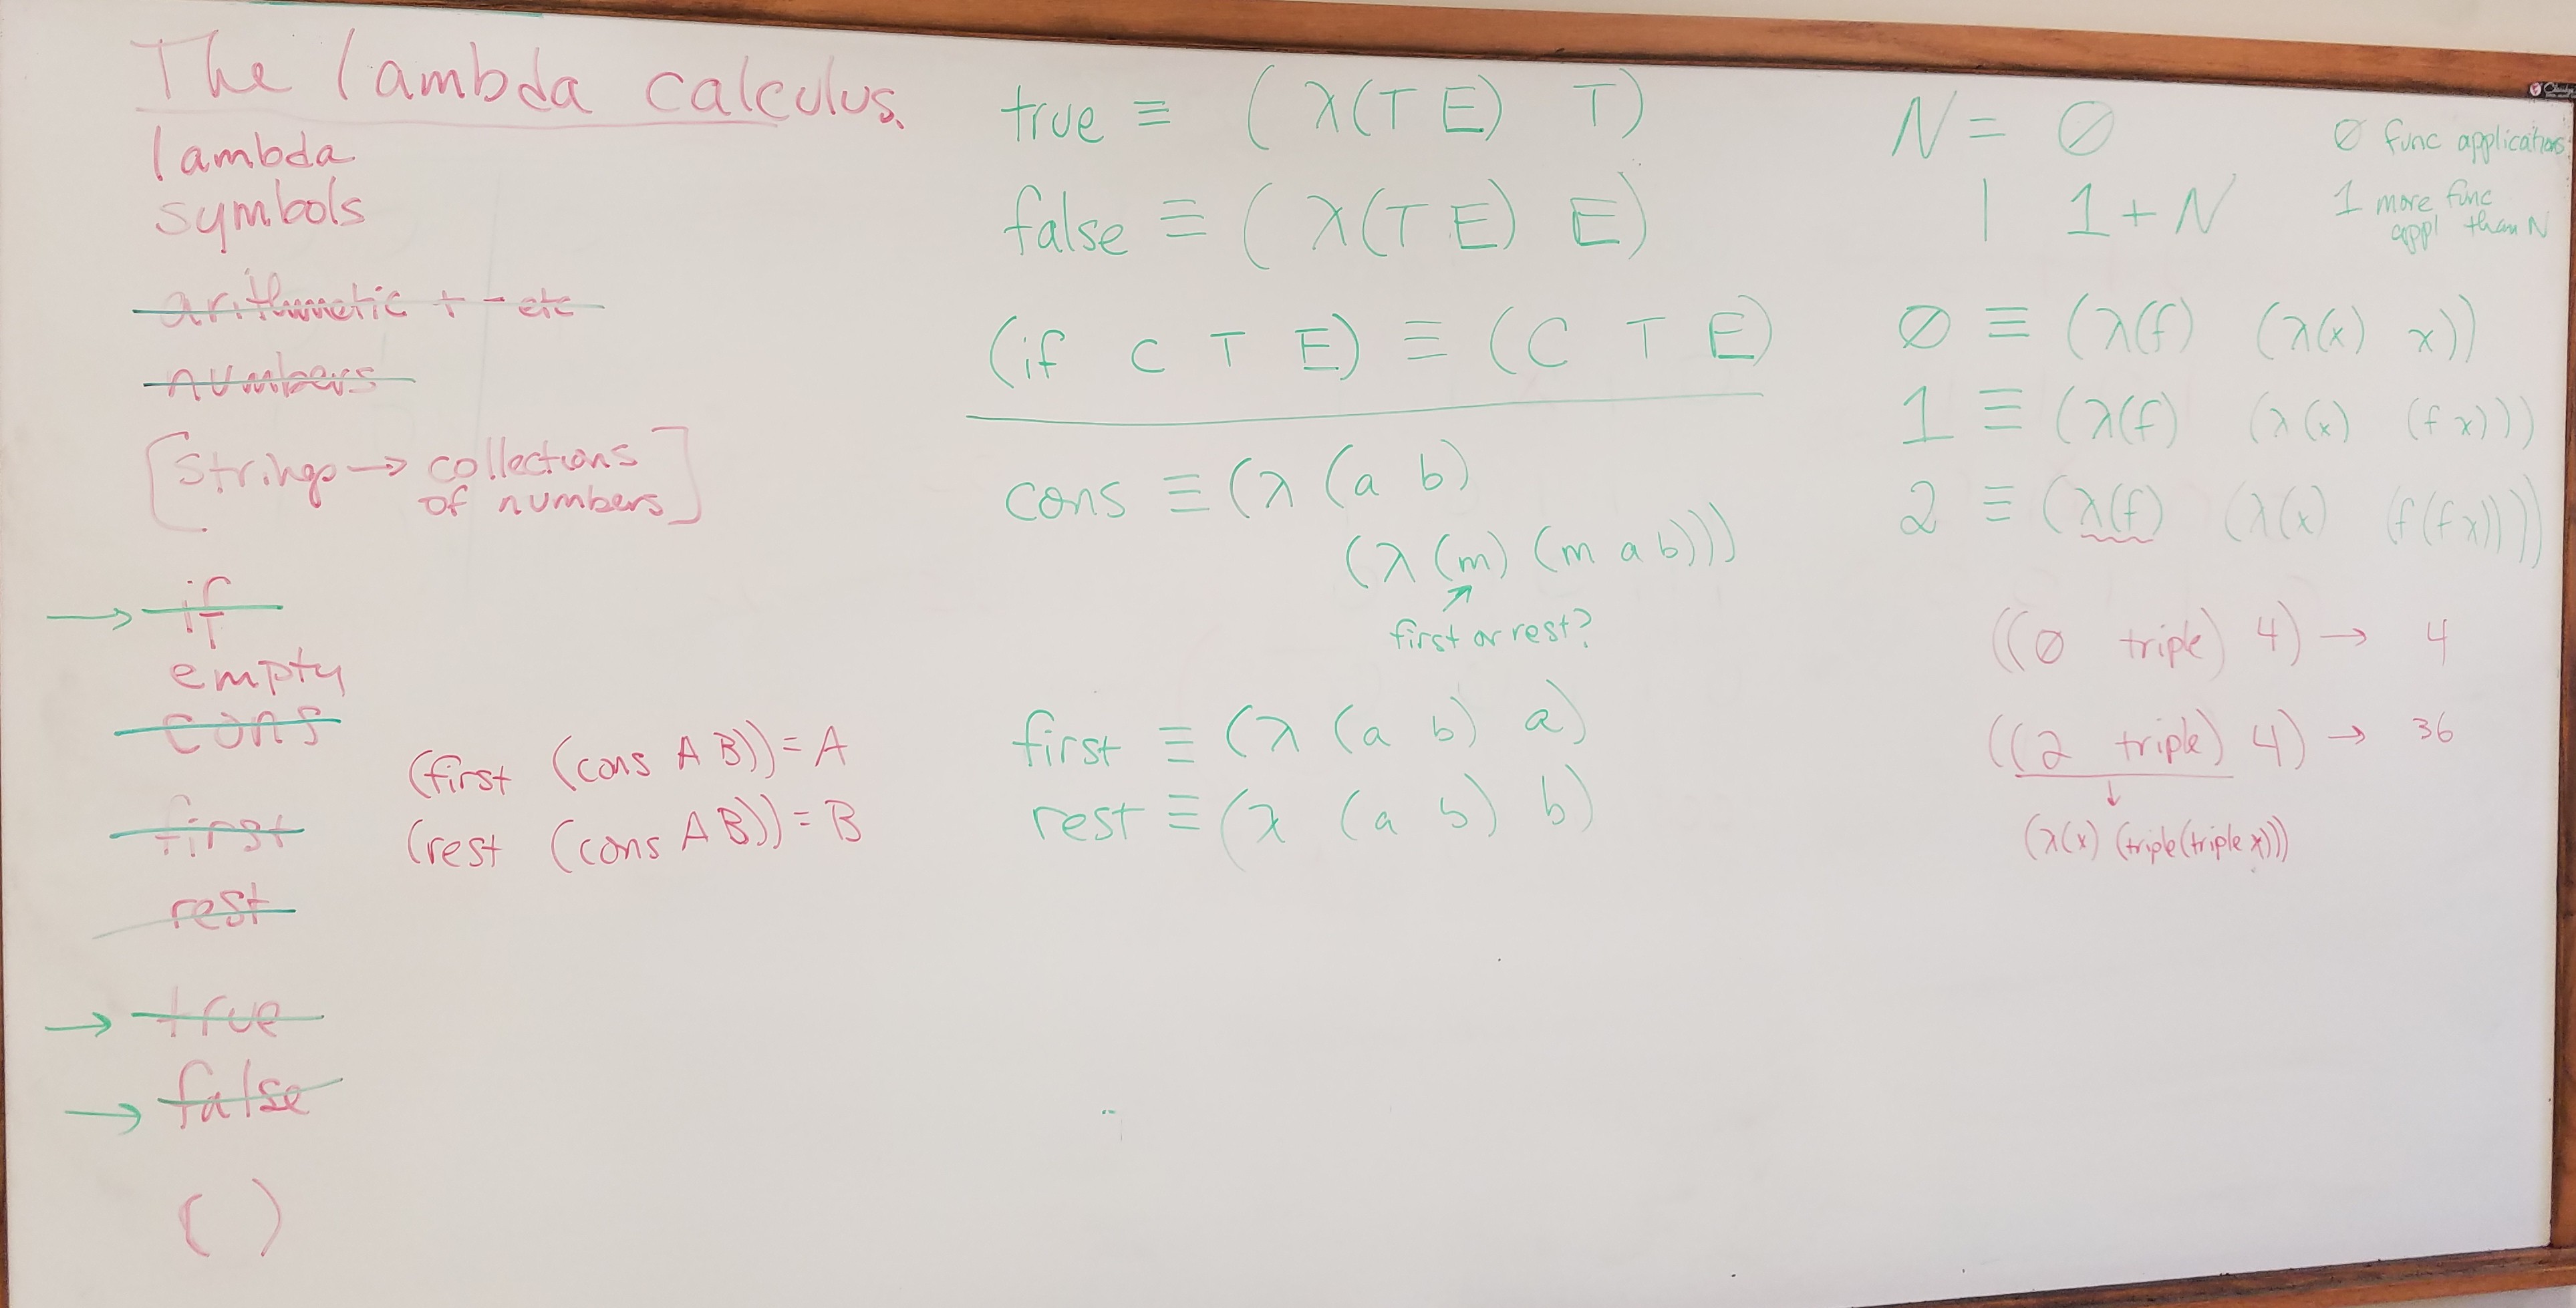 The lambda calculus.
lambda
symbols
arithmetic + - etc
numbers
[Strings → collections
of numbers]
→ if
empty
cons
first
rest
(first (cons A B)) = A
(rest (cons A B)) = B
→ true
→ false
( )
true ≡ (λ(T E) T)
false ≡ (λ(T E) E)
(if C T E) ≡ (C T E)
cons ≡ (λ (a b)
(λ (m) (m a b)))
first or rest?
first ≡ (λ (a b) a)
rest ≡ (λ (a b) b)
N = 0
| 1 + N
0 func applications
1 more func
appl than N
0 ≡ (λ(f) (λ(x) x))
1 ≡ (λ(f) (λ(x) (f x)))
2 ≡ (λ(f) (λ(x) (f (f x))))
((0 triple) 4) → 4
((2 triple) 4) → 36
↓
(λ(x) (triple(triple x)))